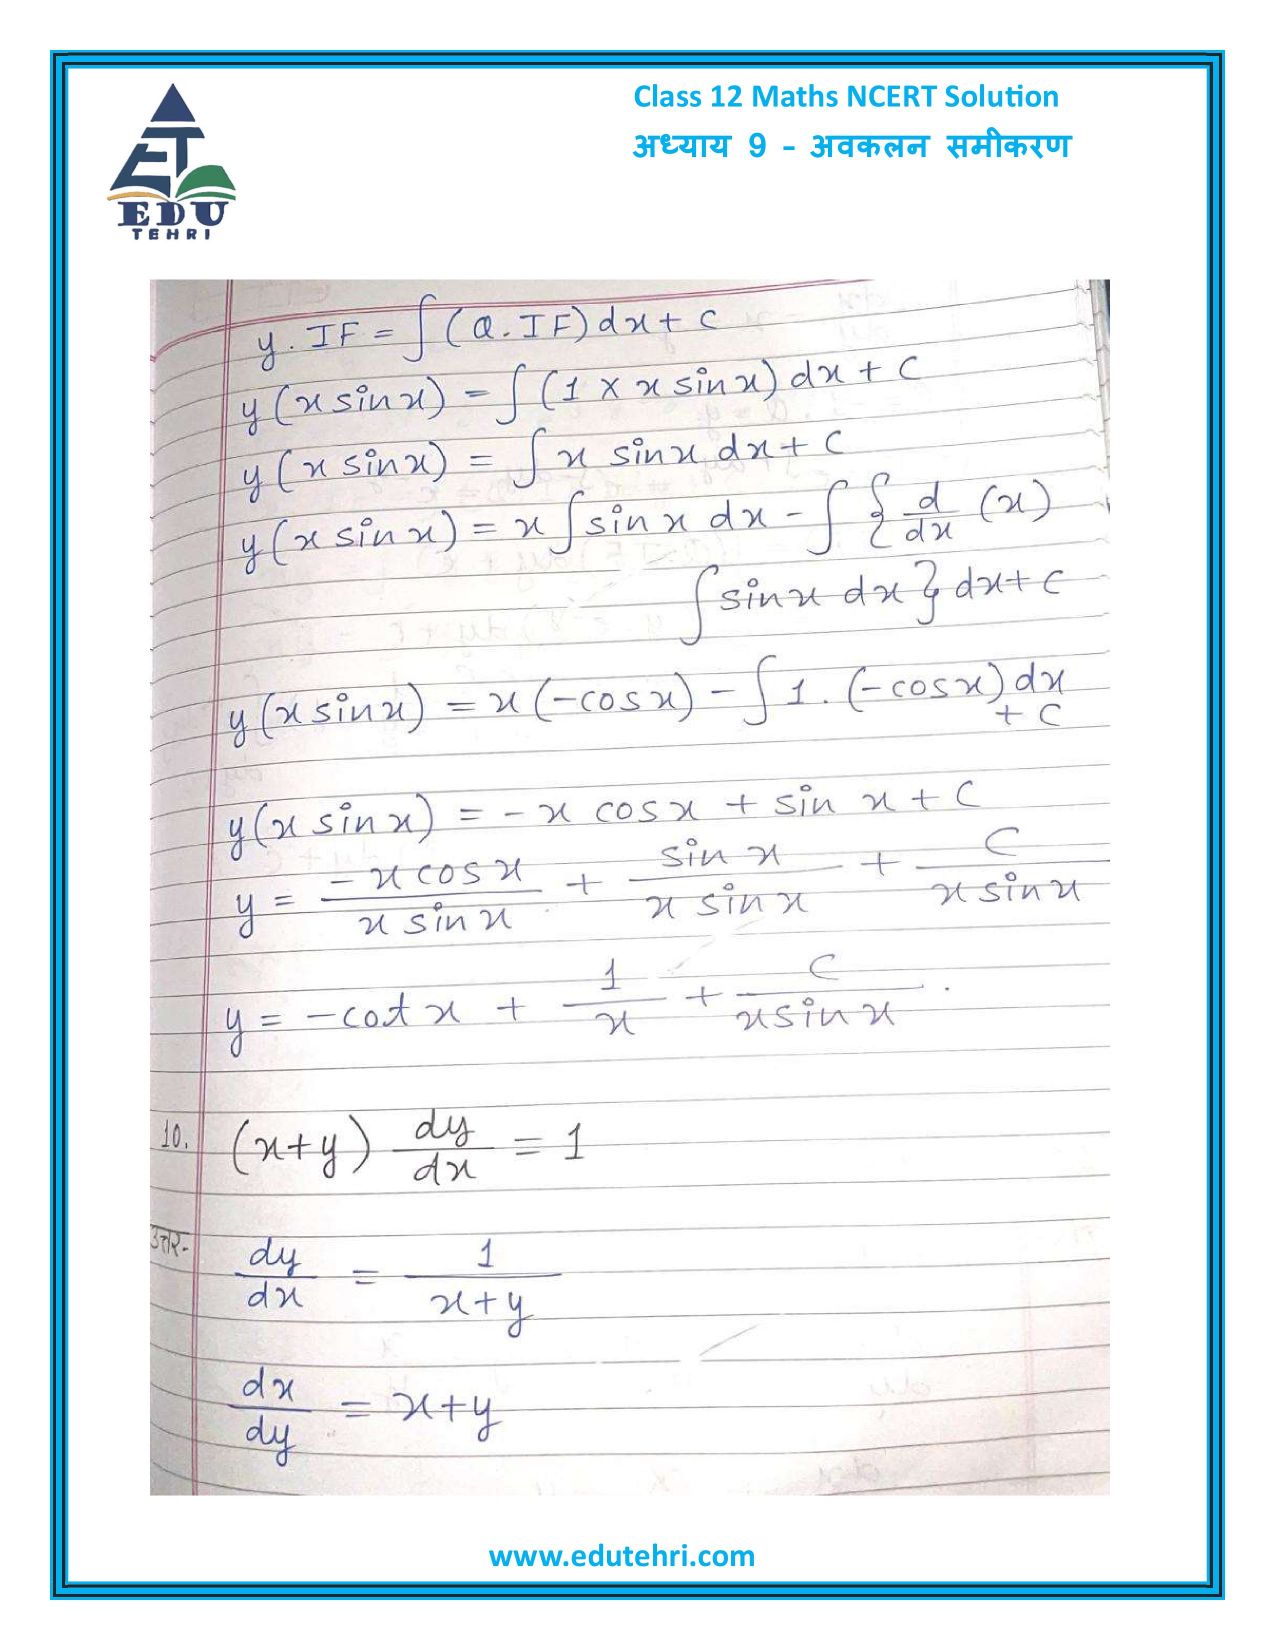 Class 12 Maths NCERT Solution
अध्याय 9 - अवकलन समीकरण
EDU
TEHRI
y . IF = ∫ (Q . IF) dx + C
y (x sin x) = ∫ (1 × x sin x) dx + C
y (x sin x) = ∫ x sin x dx + C
y (x sin x) = x ∫ sin x dx - ∫ { d/dx (x)
∫ sin x dx } dx + C
y (x sin x) = x (-cos x) - ∫ 1 . (-cos x) dx
+ C
y (x sin x) = - x cos x + sin x + C
y = -x cos x / x sin x + sin x / x sin x + C / x sin x
y = - cot x + 1/x + C / x sin x .
10. (x+y) dy/dx = 1
उत्तर- dy/dx = 1 / x+y
dx/dy = x+y
www.edutehri.com